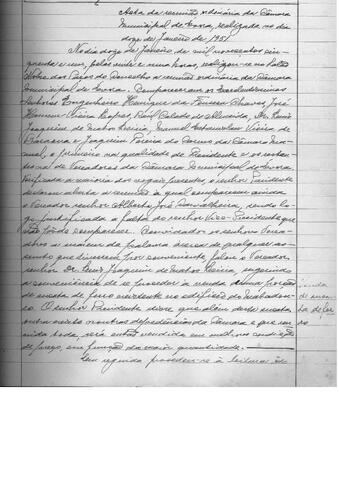 Acta da reunião ordinária da Câmara
Municipal de Évora, realizada no dia
doze de Janeiro de 1951
No dia doze de Janeiro de mil novecentos cin-
quenta e um, pelas vinte e uma horas, realizou-se no Salão
Nobre dos Paços do Concelho a reunião ordinária da Câmara
Municipal de Évora. Compareceram os Excelentíssimos
Senhores Engenheiro Henrique da Fonseca Chaves, José
Vieira Lopes, Raul Calado de Almeida, Dr. Luis
Joaquim de Matos Pereira, Manuel Estanislau Vieira de
Barahona e Joaquim Pereira do Carmo da Câmara Ma-
nuel, o primeiro na qualidade de Presidente e os restan-
tes na de Vereadores da Câmara Municipal de Évora.
Verificada a maioria dos vogais presentes, o senhor Presidente
declarou aberta a reunião à qual compareceu ainda
o Vereador senhor Alberto José, sendo lo-
go justificada a falta do senhor Vice-Presidente que
não pôde comparecer. Convidados os senhores Verea-
dores a usarem da palavra àcerca de qualquer as-
sunto que tivessem por conveniente, falou o Vereador
senhor Dr. Luis Joaquim de Matos Pereira, sugerindo
a conveniência de se proceder à venda duma porção
de sucata de ferro existente no edifício do Matadou-
ro. O senhor Presidente disse que além desta sucata
outra existe noutras dependências da Câmara e que reu-
nida toda, será então vendida em melhores condições
de preço, em função da maior quantidade.
Em seguida procedeu-se à leitura de
Venda
de suca-
ta de fer-
ro